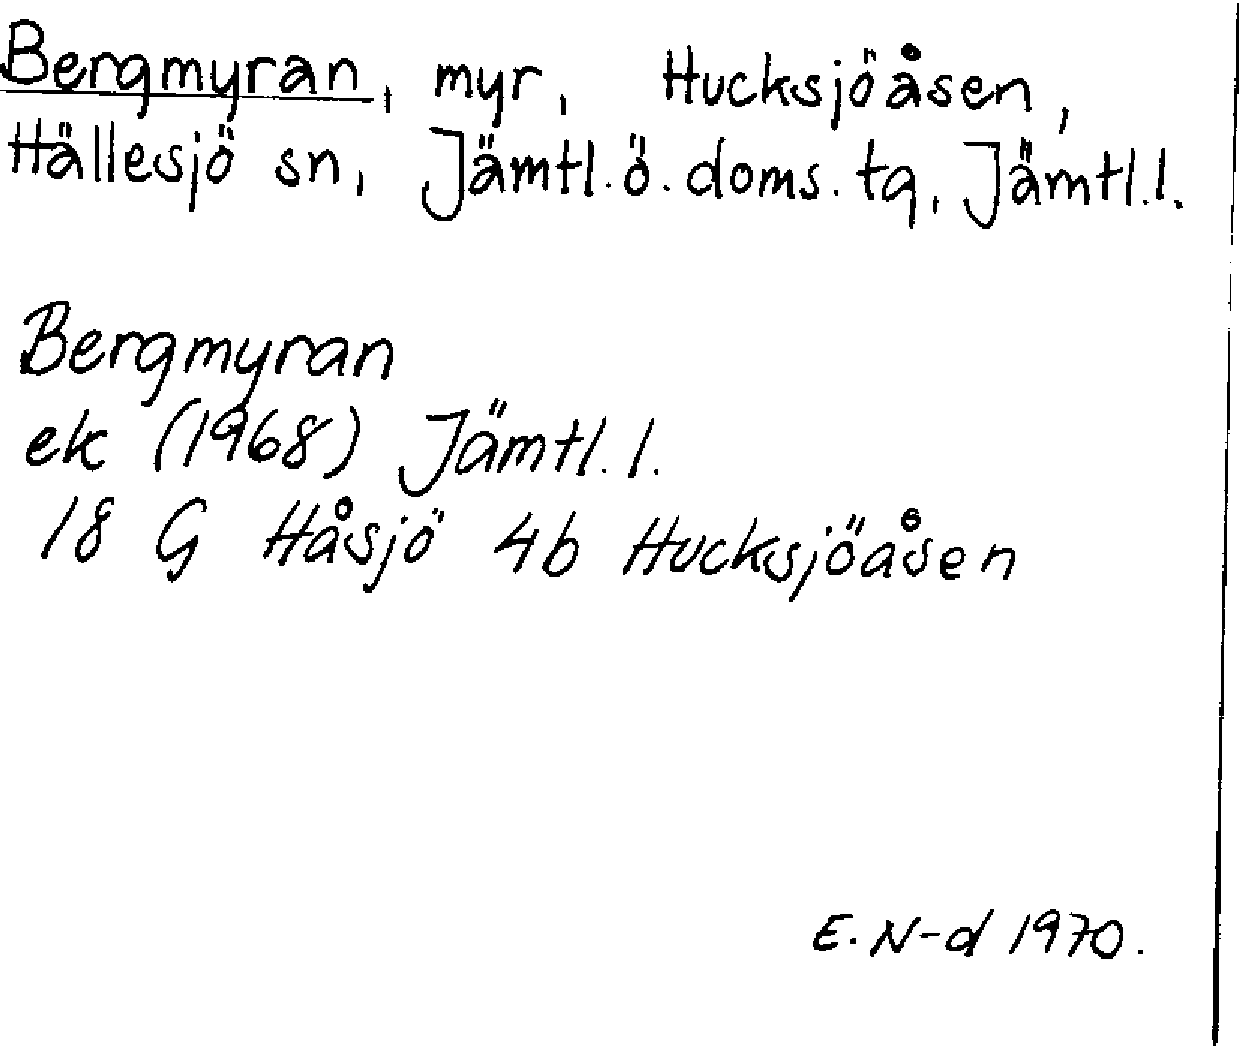 Bergmyran, myr, Hucksjöåsen,
Hällesjö sn, Jämtl.ö.doms.tg, Jämtl.l.
Bergmyran
ek (1968) Jämtl.l.
18 G Håsjö 4b Hucksjöåsen
E. N-d 1970.